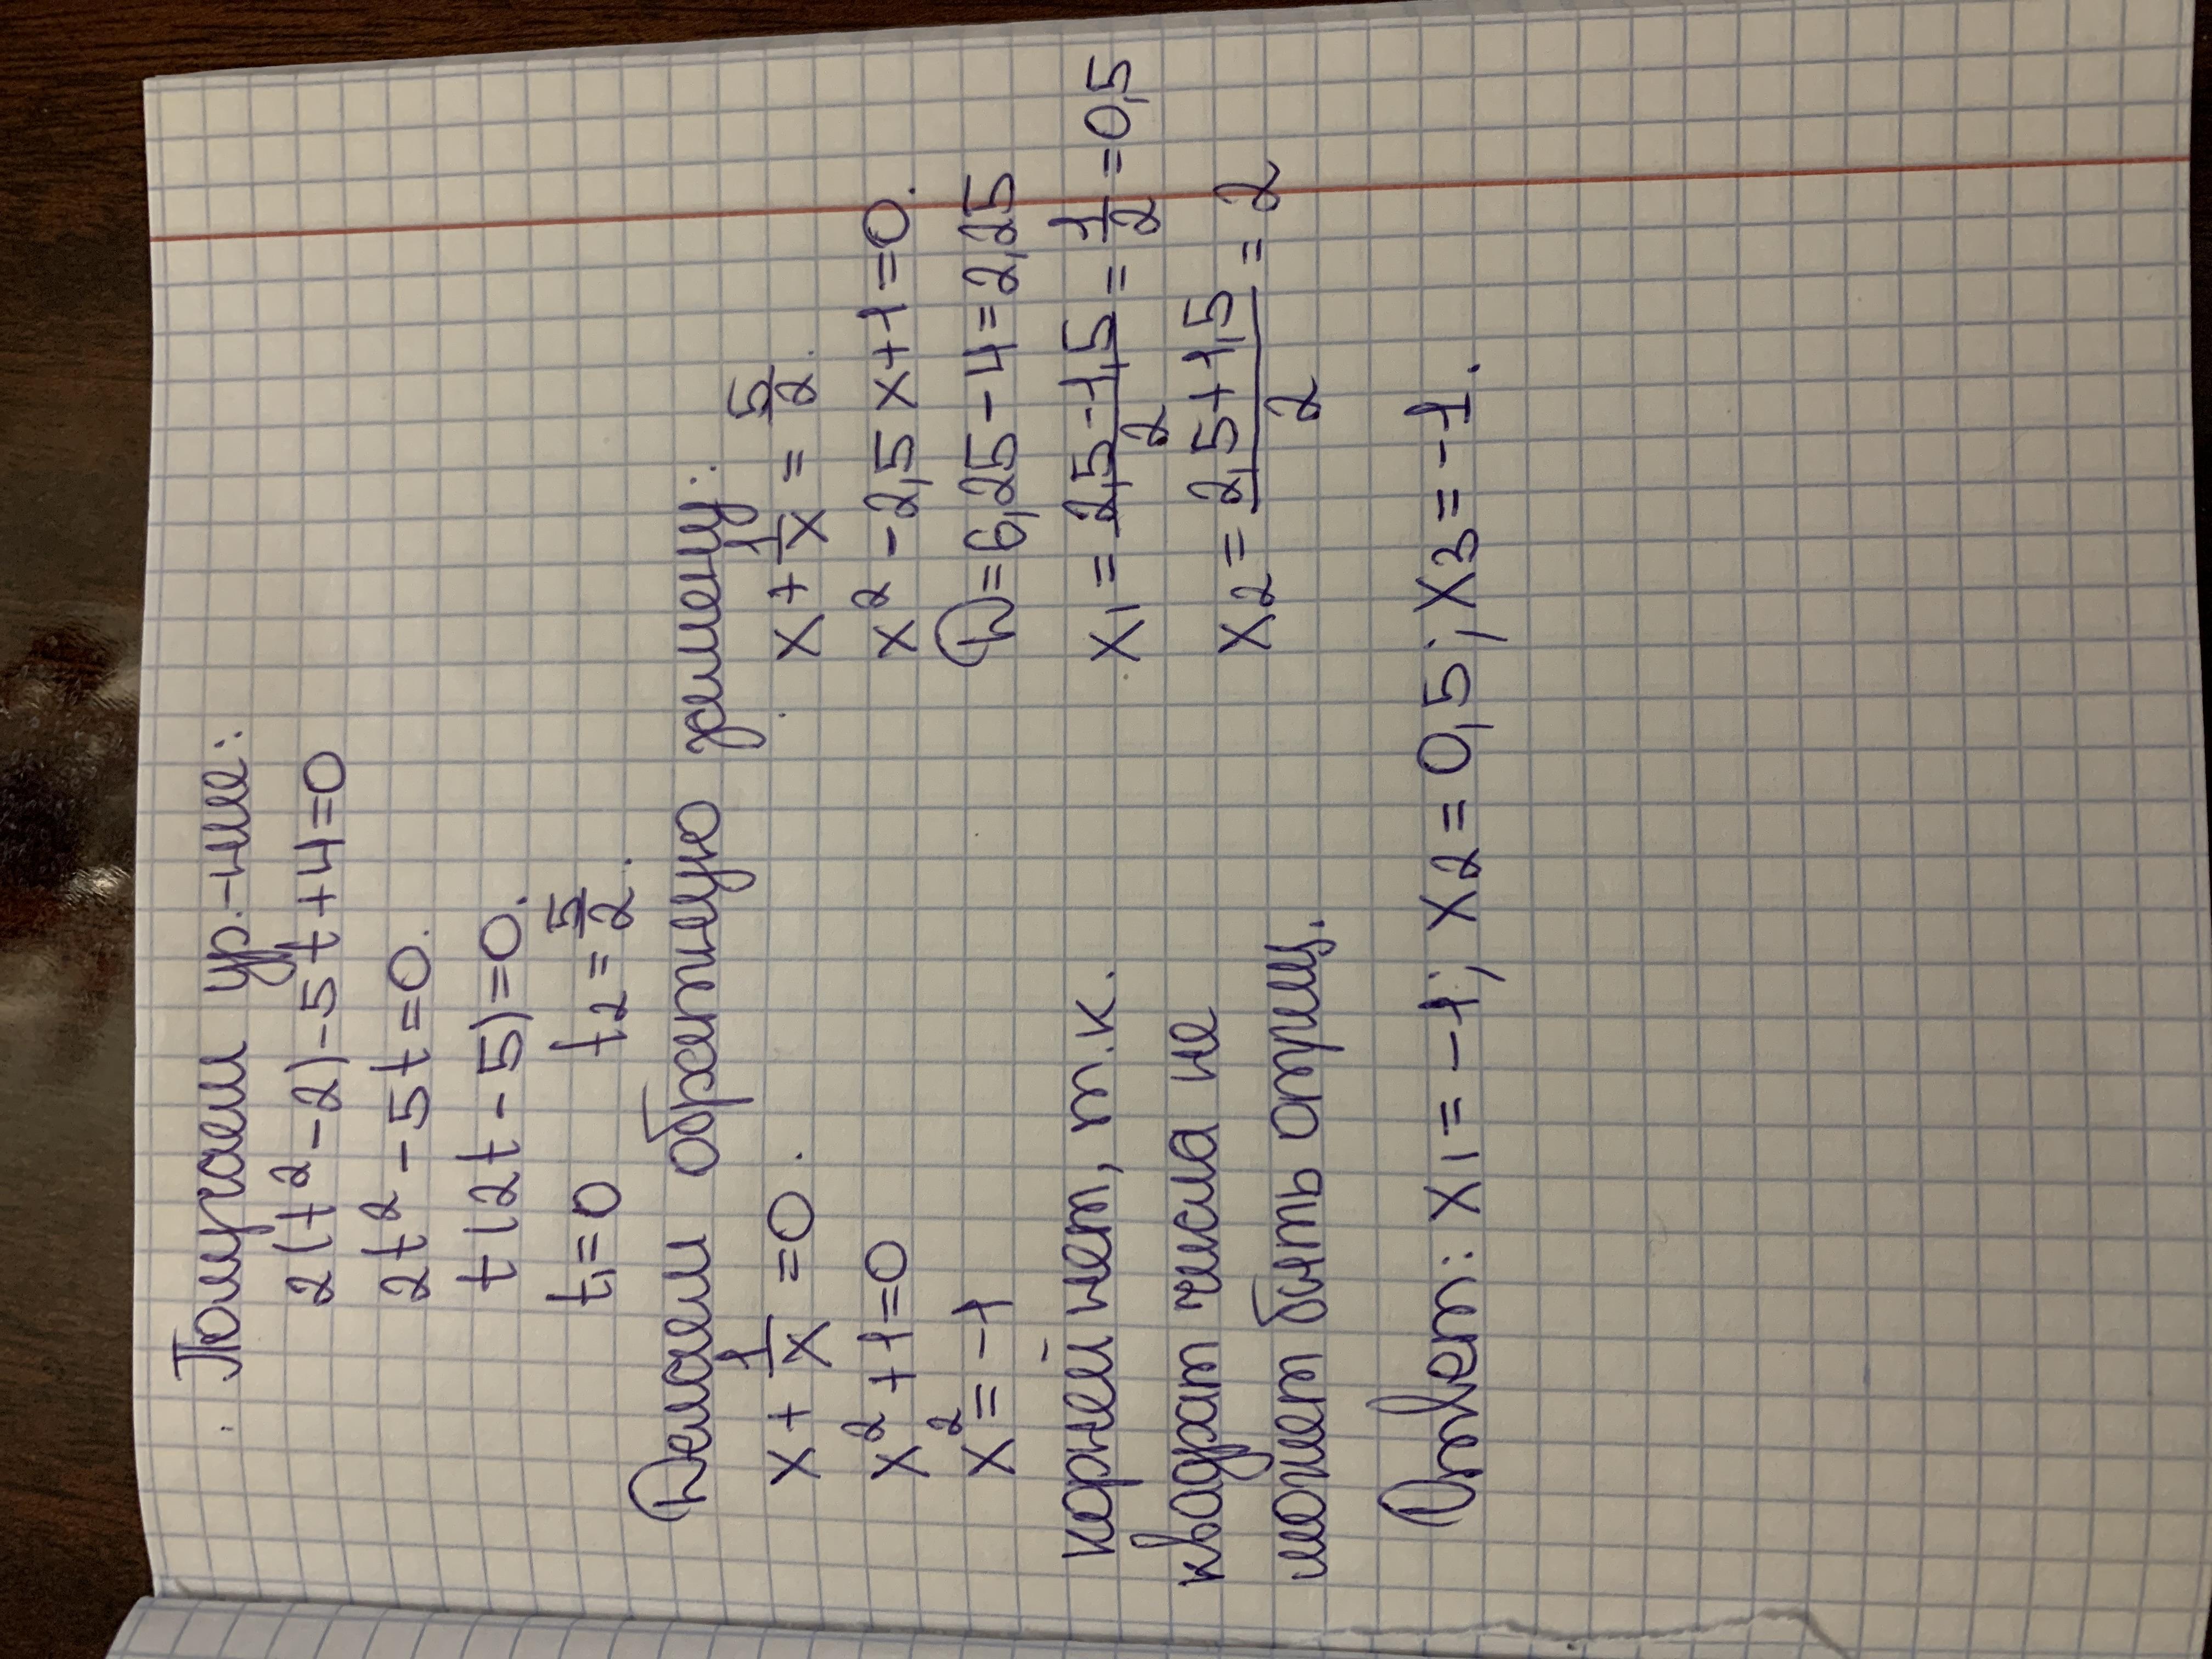 Получаем ур.-ние:
2(t²-2)-5t+4=0
2t²-5t=0.
t(2t-5)=0.
t₁=0 t₂=5/2.
Делаем обратную замену:
x+1/x=0. x+1/x=5/2.
x²+1=0 x²-2,5x+1=0.
x²=-1 D=6,25-4=2,25
корней нет, т.к. x₁=(2,5-1,5)/2=1/2=0,5
квадрат числа не x₂=(2,5+1,5)/2=2
может быть отриц.
Ответ: x₁=-1; x₂=0,5; x₃=-1.